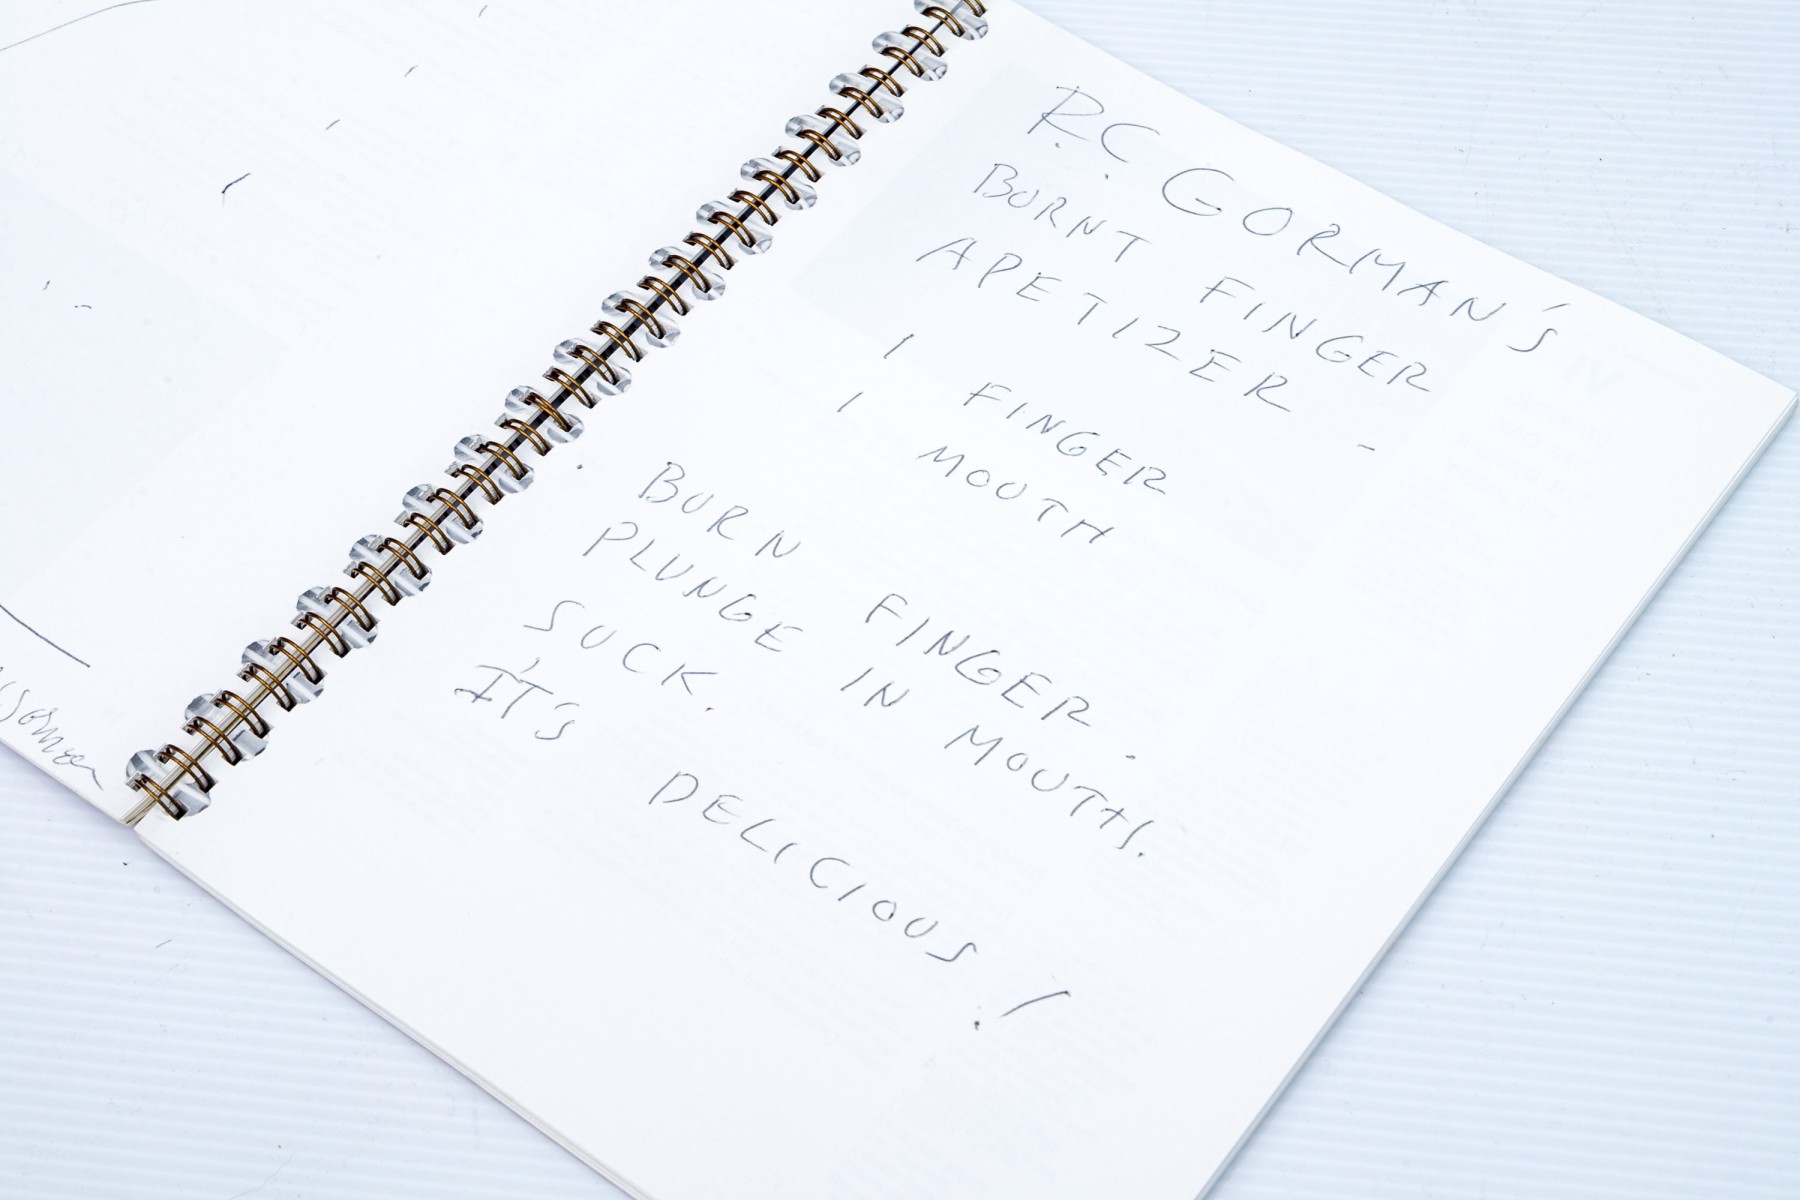 R.C. GORMAN'S
BURNT FINGER
APETIZER -
1 FINGER
1 MOUTH
BURN FINGER.
PLUNGE IN MOUTH.
SUCK.
IT'S DELICIOUS!
Gorman